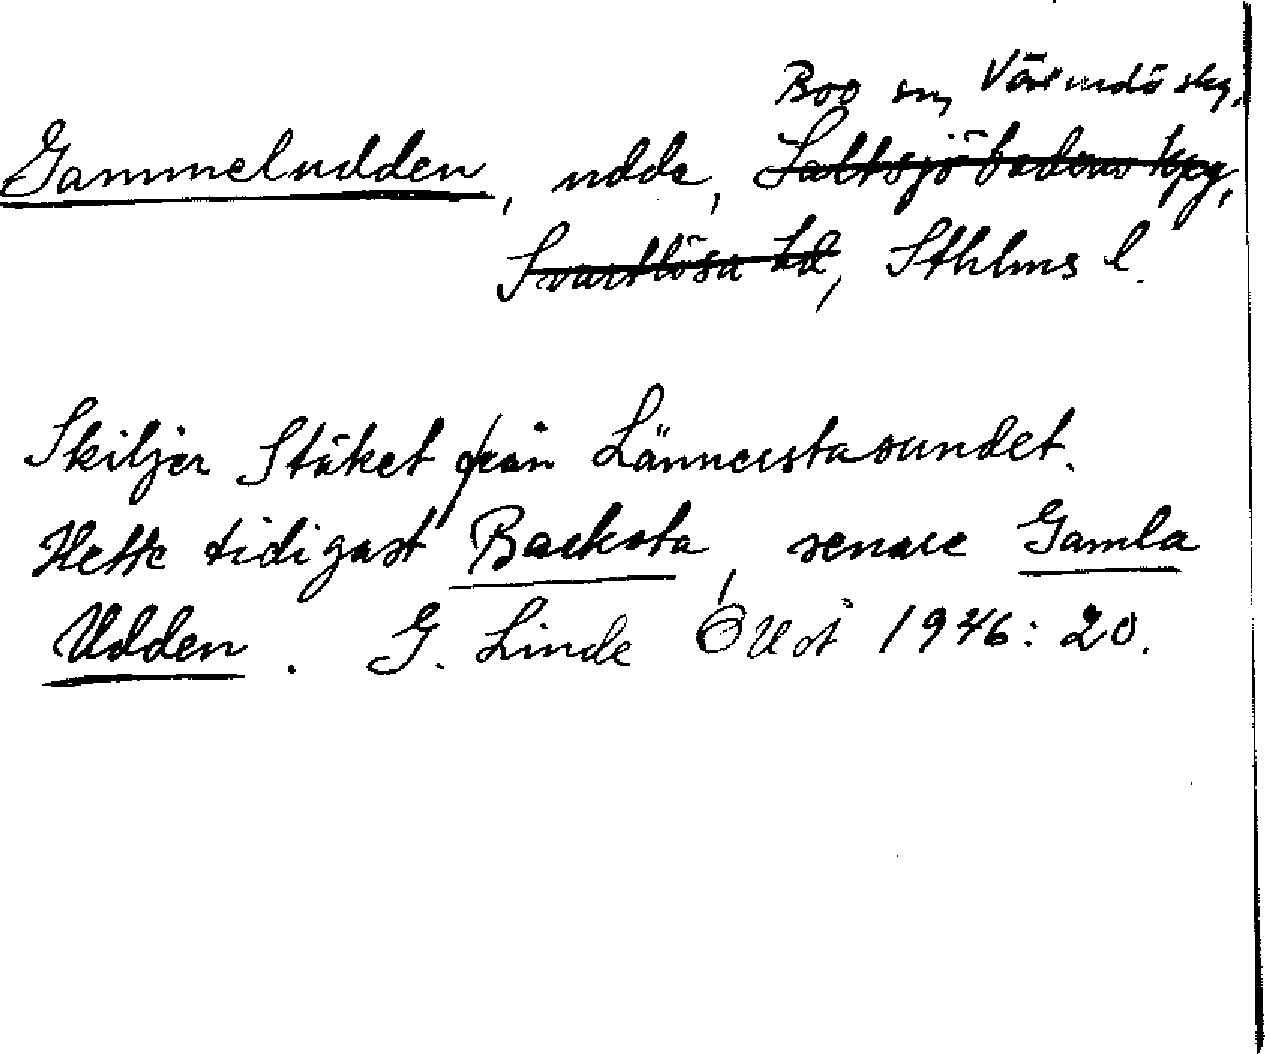 Boo sn, Värmdö skg,
Gammeludden, udde, Saltsjöbadens kpg,
Svartlösa hd, Sthlms l.
Skiljer Stäket från Lännerstasundet.
Hette tidigast Backsta, senare Gamla
Udden. G. Linde ÖUst 1946: 20.